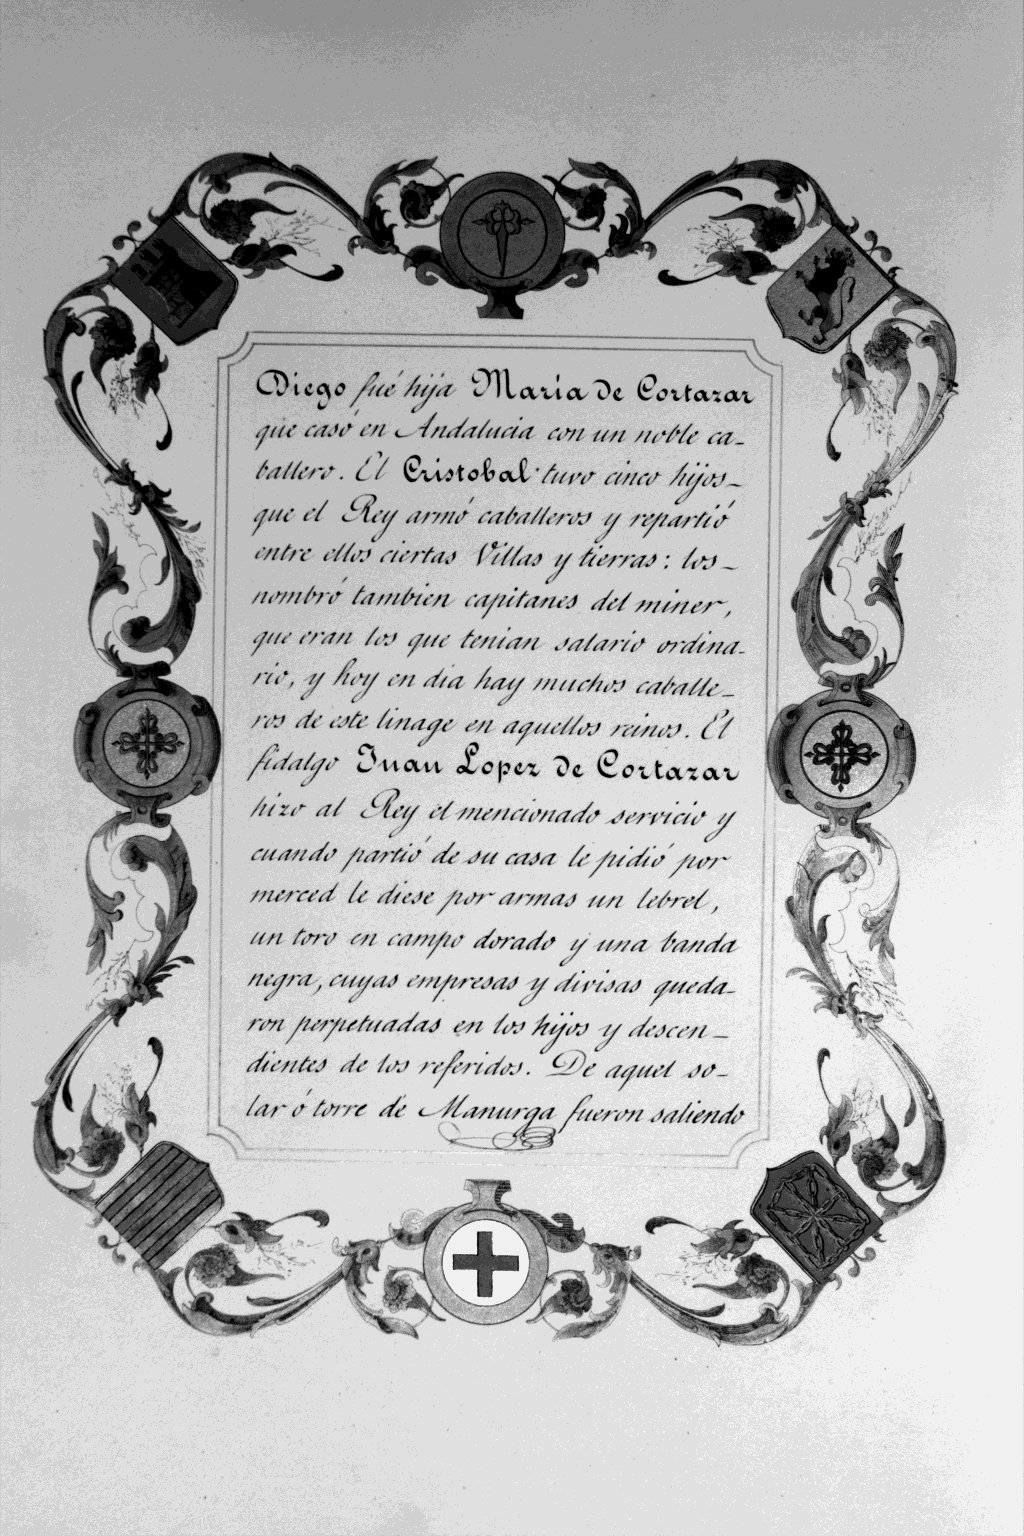 Diego fué hija María de Cortazar
que casó en Andalucia con un noble ca-
ballero. El Cristobal tuvo cinco hijos-
que el Rey armó caballeros y repartió
entre ellos ciertas Villas y tierras: los-
nombró tambien capitanes del miner,
que eran los que tenian salario ordina-
rio, y hoy en dia hay muchos caballe-
ros de este linage en aquellos reinos. El
fidalgo Juan Lopez de Cortazar
hizo al Rey el mencionado servicio y
cuando partió de su casa le pidió por
merced le diese por armas un lebrel,
un toro en campo dorado y una banda
negra, cuyas empresas y divisas queda-
ron perpetuadas en los hijos y descen-
dientes de los referidos. De aquel so-
lar ó torre de Manurga fueron saliendo